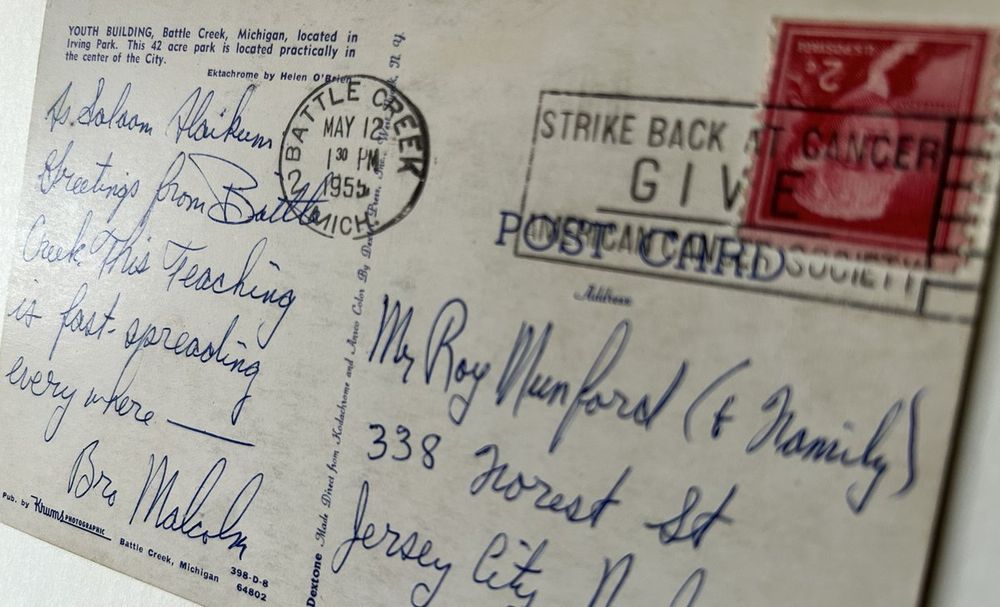 YOUTH BUILDING, Battle Creek, Michigan, located in
Irving Park. This 42 acre park is located practically in
the center of the City.
Ektachrome by Helen O'Brien
As. Salaam Alaikum
Greetings from Battle
Creek. This Teaching
is fast-spreading
every where ——
Bro Malcolm
Pub. by Krums PHOTOGRAPHIC
Battle Creek, Michigan
398-D-8
64802
Dextone Made Direct from Kodachrome and Ansco Color By Dexter Press, Inc., West N. Y.
BATTLE CREEK
MAY 12
1 30 PM
1955
2 MICH.
STRIKE BACK AT CANCER
GIVE
AMERICAN CANCER SOCIETY
2¢
POST CARD
Address
Mr Roy Munford (& Family)
338 Forest St
Jersey City